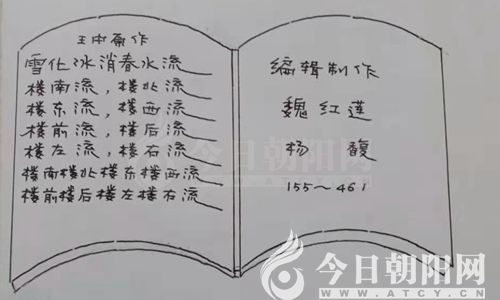 王本原作
雪化冰消春水流
楼南流，楼北流
楼东流，楼西流
楼前流，楼后流
楼左流，楼右流
楼南楼北楼东楼西流
楼前楼后楼左楼右流
编辑制作
魏红莲
杨馥
155～461
今日朝阳网
今日朝阳网
WWW.ATCY.CN